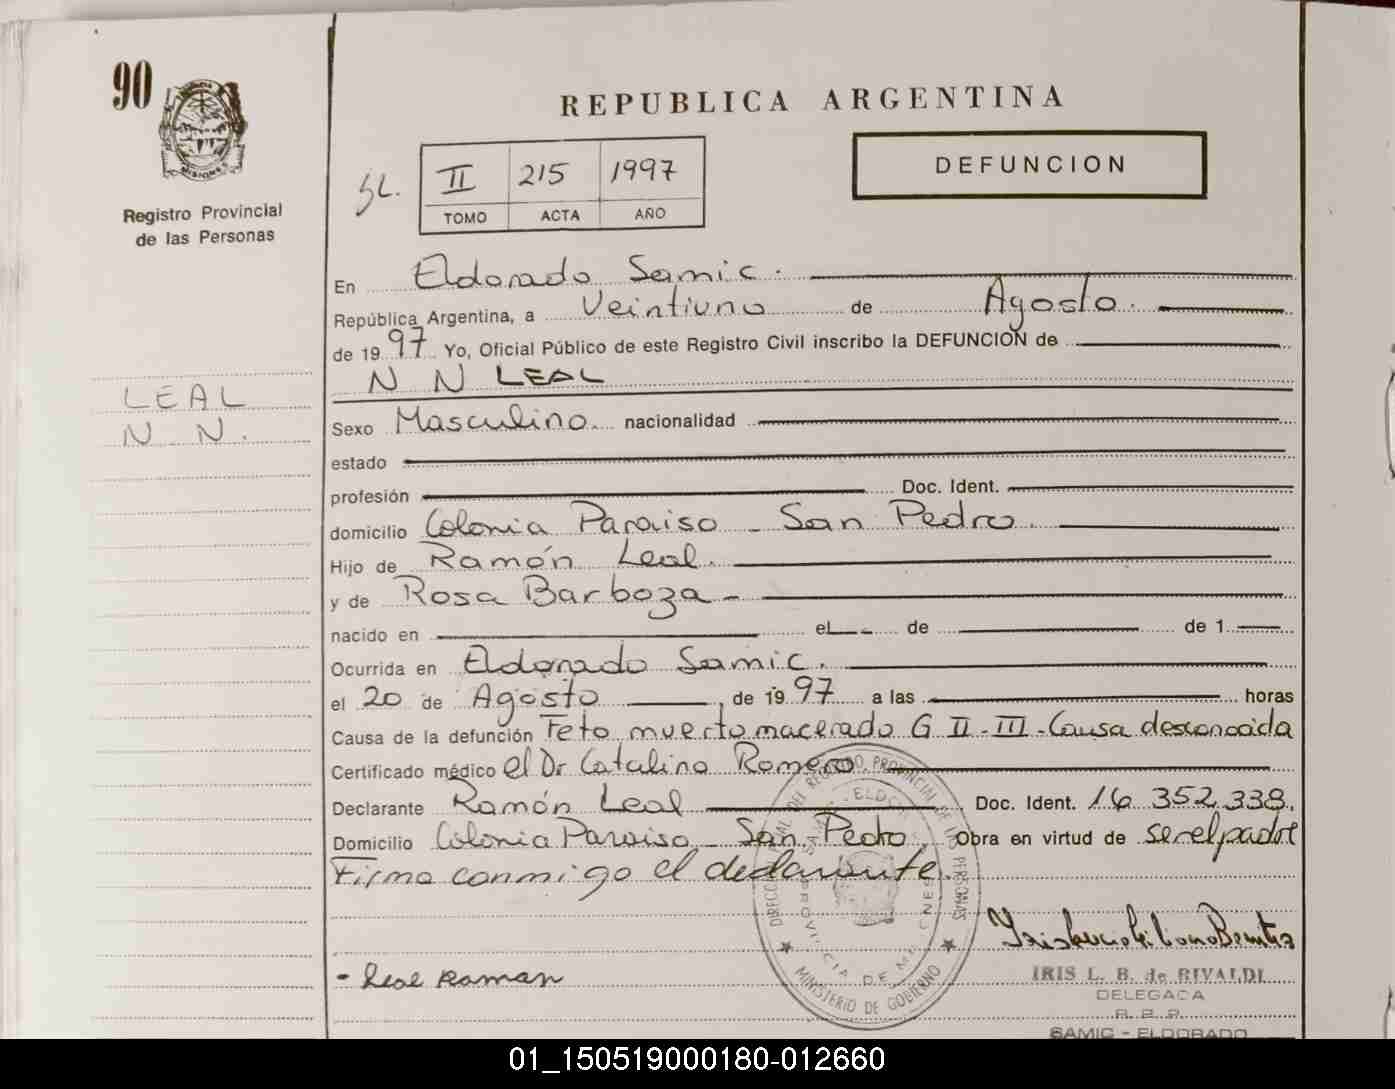 90
MISIONES
Registro Provincial
de las Personas
LEAL
N N.
REPUBLICA ARGENTINA
DEFUNCION
SL. II 215 1997
TOMO ACTA AÑO
En Eldorado Samic.
República Argentina, a Veintiuno de Agosto.
de 1997 Yo, Oficial Público de este Registro Civil inscribo la DEFUNCION de
N N LEAL
Sexo Masculino. nacionalidad
estado
profesión Doc. Ident.
domicilio Colonia Paraiso - San Pedro.
Hijo de Ramón Leal.
y de Rosa Barboza -
nacido en el de de 1
Ocurrida en Eldorado Samic.
el 20 de Agosto, de 1997 a las horas
Causa de la defunción Feto muerto macerado G II - III - Causa desconocida
Certificado médico el Dr Catalino Romero.
Declarante Ramón Leal Doc. Ident. 16 352 338.
Domicilio Colonia Paraiso - San Pedro. Obra en virtud de ser el padre
Firma conmigo el declarante.
- Leal Ramon
IRIS L. B. de RIVALDI
DELEGADA
R. P. P.
SAMIC - ELDORADO
MINISTERIO DE GOBIERNO
PROVINCIA DE MISIONES
01_150519000180-012660